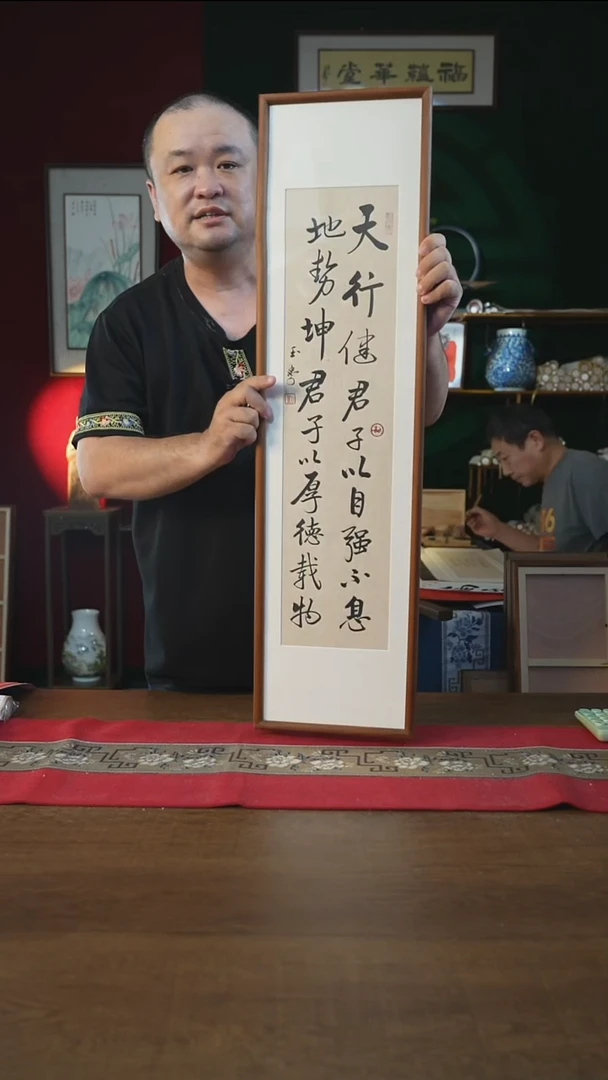 福蕴华堂
天行健君子以自强不息
地势坤君子以厚德载物